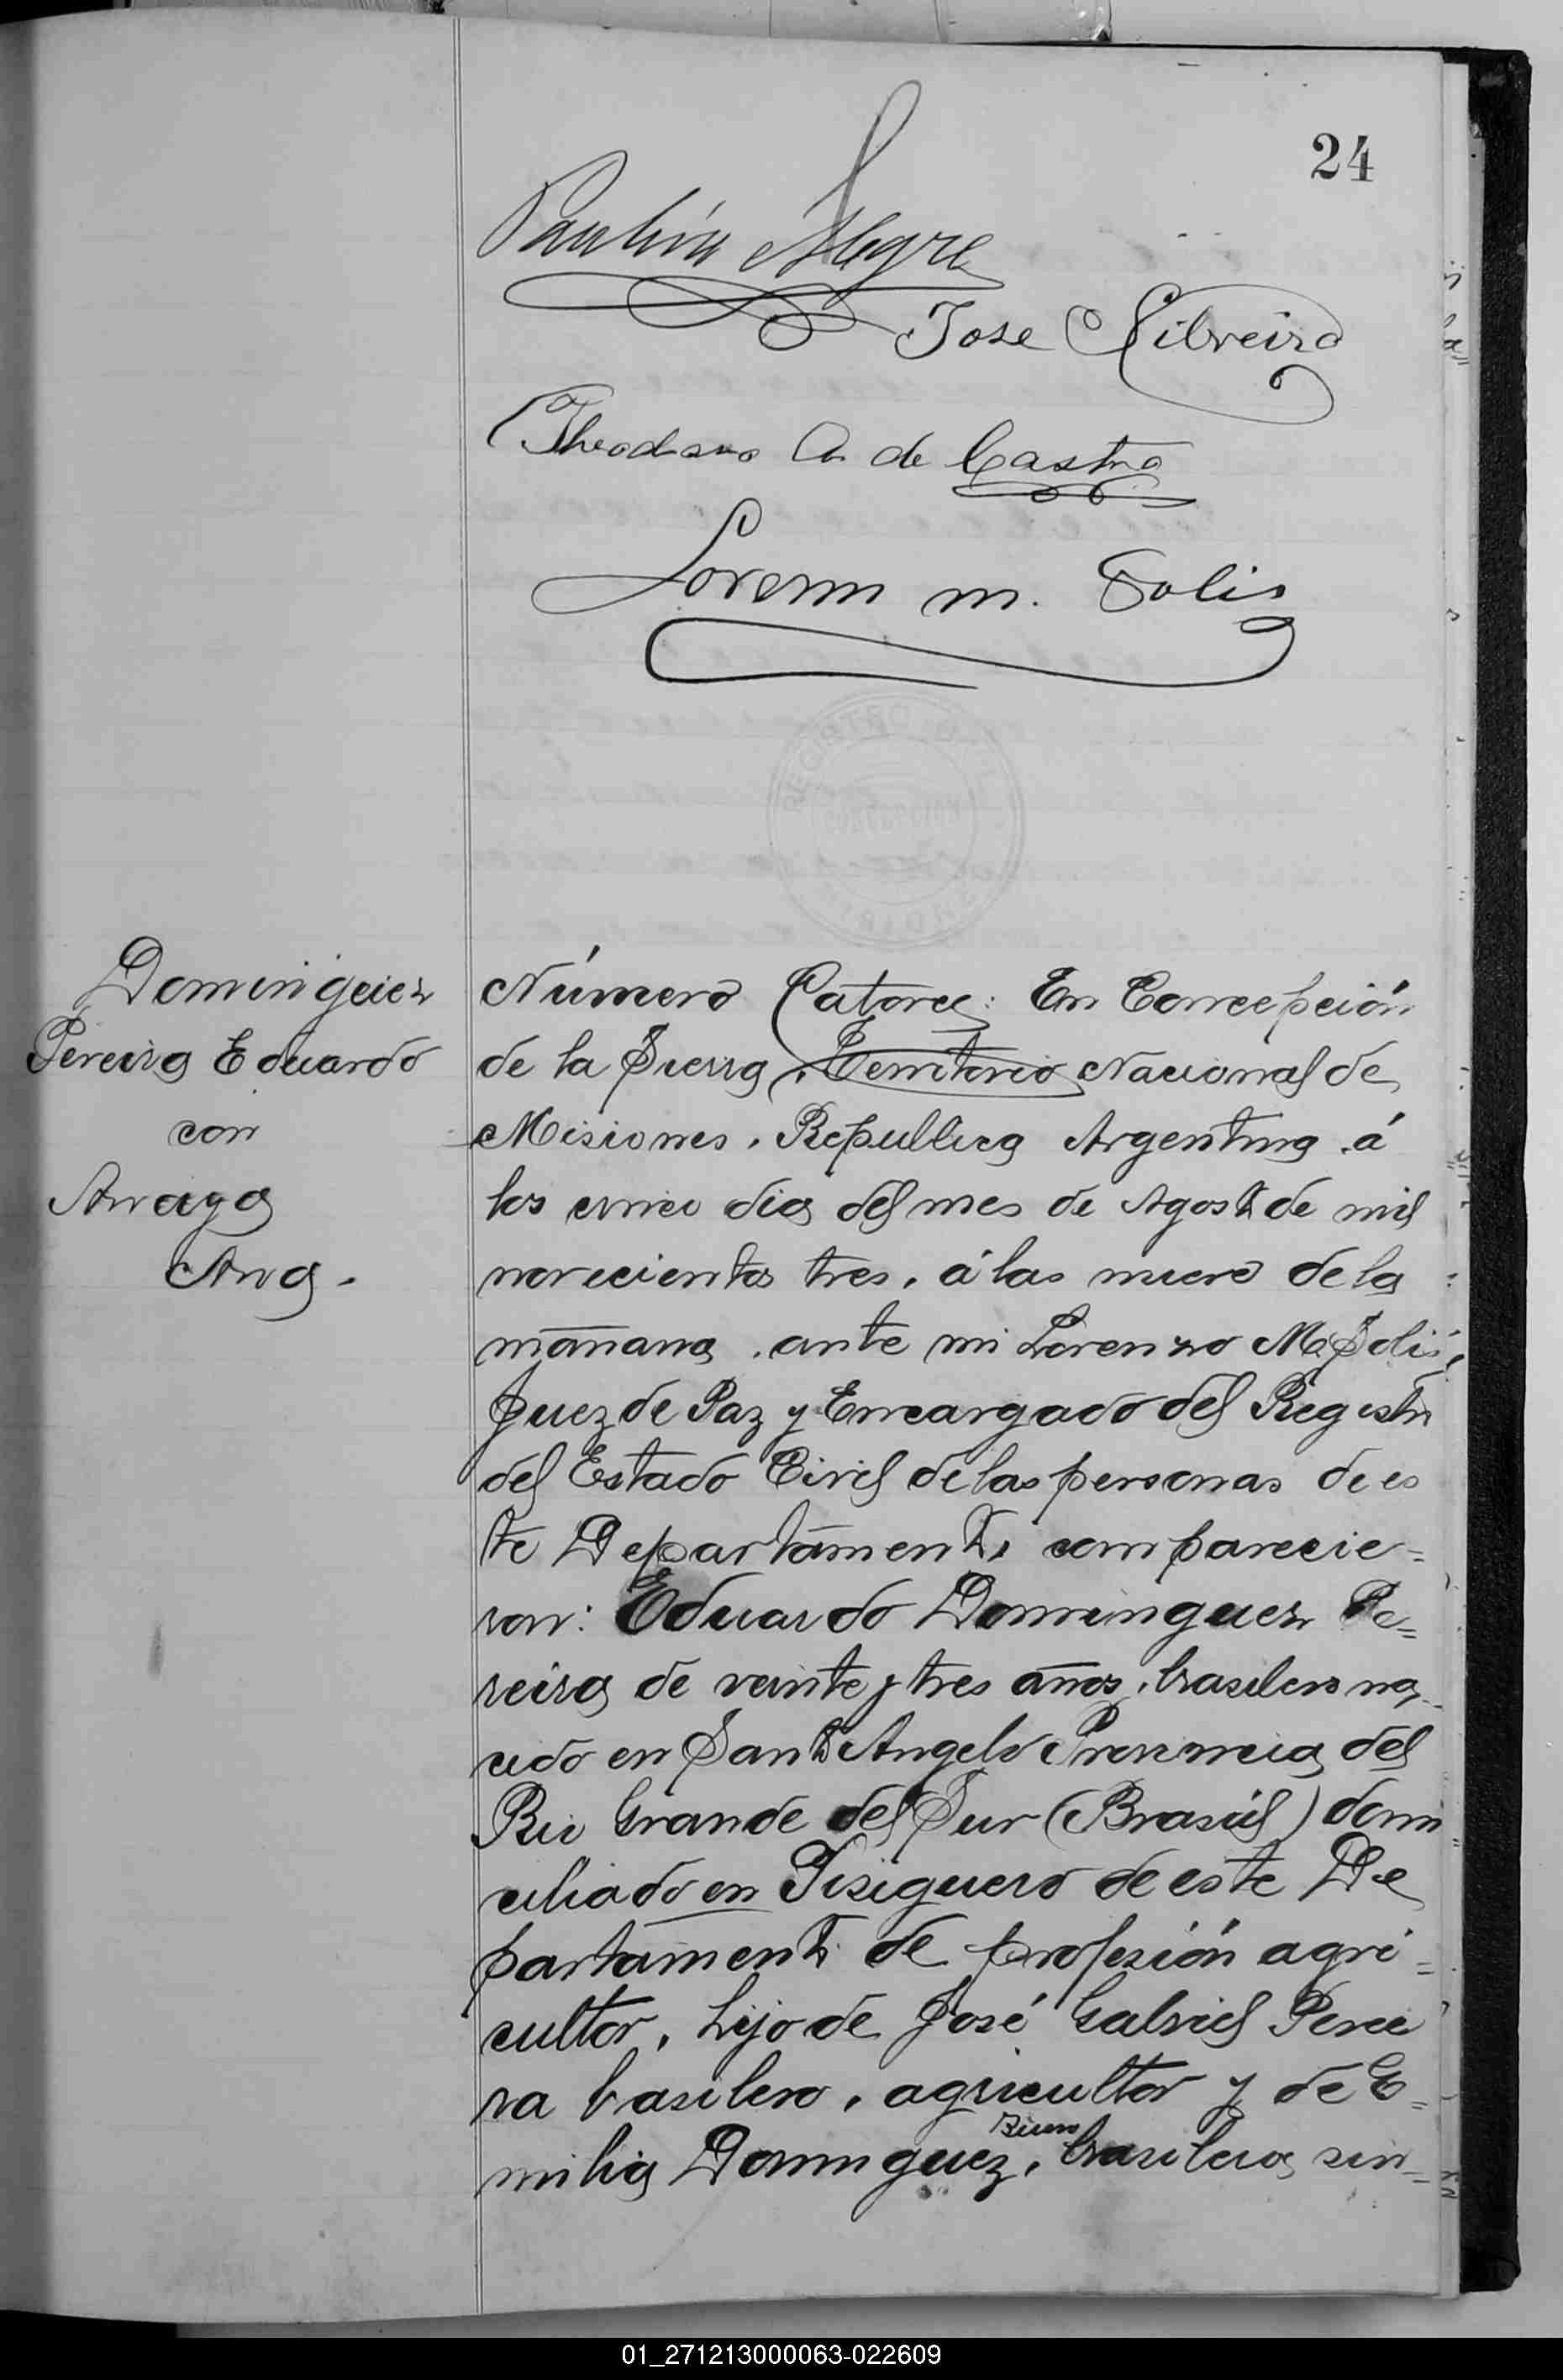 24
Paulin Alegre
Jose Silveira
Theodoro A. de Castro
Lorenzo M. Solis
REGISTRO CIVIL
CONCEPCION
MISIONES
Dominguez
Pereira Eduardo
con
Araya
Ana.
Número Catorce: En Concepción
de la Sierra, Territorio Nacional de
Misiones, Republica Argentina á
los cinco dias del mes de Agosto de mil
novecientos tres, á las nueve de la
mañana, ante mi Lorenzo M. Solis,
Juez de Paz y Encargado del Registro
del Estado Civil de las personas de es
te Departamento, comparecie=
ron: Eduardo Dominguez Pe=
reira de veinte y tres años, brasilero na=
cido en Santo Angelo Provincia del
Rio Grande del Sur (Brasil) domi=
ciliado en Tisiguero de este De
partamento de profesión agri=
cultor, hijo de José Gabriel Perei
ra brasilero, agricultor y de E=
milia Dominguez, brasilera, sin=